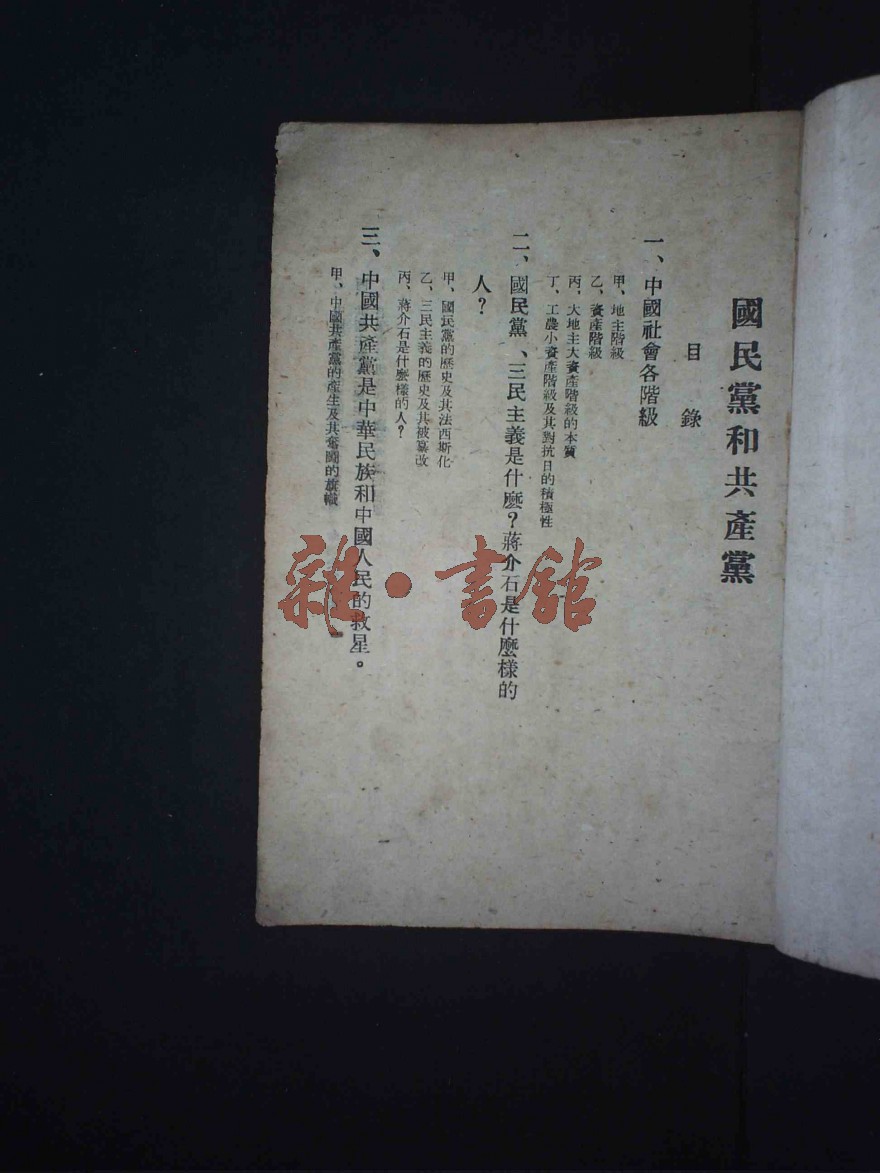 國民黨和共產黨
目錄
一、中國社會各階級
甲、地主階級
乙、資產階級
丙、大地主大資產階級的本質
丁、工農小資產階級及其對抗日的積極性
二、國民黨、三民主義是什麼？蔣介石是什麼樣的
人？
甲、國民黨的歷史及其法西斯化
乙、三民主義的歷史及其被篡改
丙、蔣介石是什麼樣的人？
三、中國共產黨是中華民族和中國人民的救星。
甲、中國共產黨的產生及其奮鬭的旗幟
雜·書館